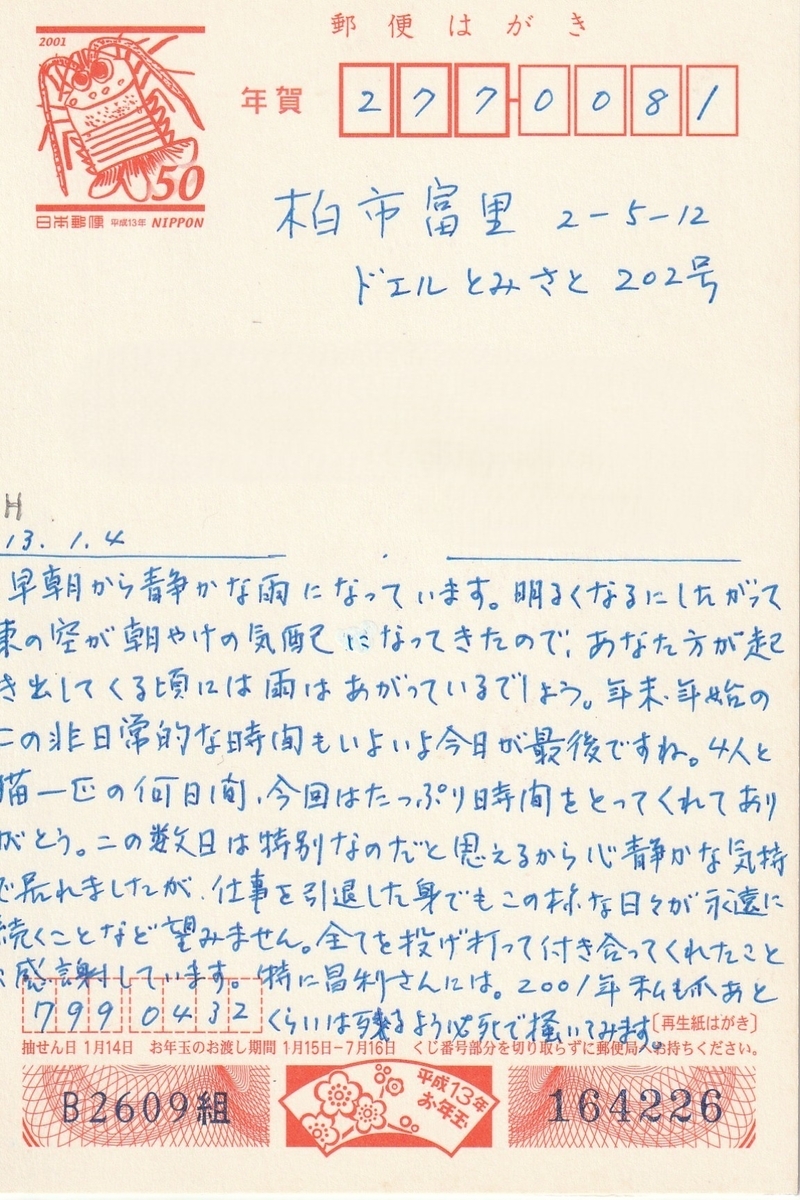 郵便はがき
2001
年賀
277-0081
50
日本郵便 平成13年 NIPPON
柏市富里 2-5-12
ドエルとみさと 202号
H
13. 1. 4
早朝から静かな雨になっています。明るくなるにしたがって
東の空が朝やけの気配になってきたので、あなた方が起
き出してくる頃には雨はあがっているでしょう。年末・年始の
この非日常的な時間もいよいよ今日が最後ですね。4人と
猫一匹の何日間、今回はたっぷり時間をとってくれてあり
がとう。この数日は特別なのだと思えるから心静かな気持
で居れましたが、仕事を引退した身でもこの様な日々が永遠に
続くことなど望みません。全てを投げ打って付き合ってくれたこと
に感謝しています。特に昌利さんには。2001年私も爪あと
799 0432 くらいは残るよう必死で掻いてみます。
〔再生紙はがき〕
抽せん日 1月14日 お年玉のお渡し期間 1月15日−7月16日 くじ番号部分を切り取らずに郵便局へお持ちください。
B2609組
平成13年
お年玉
164226